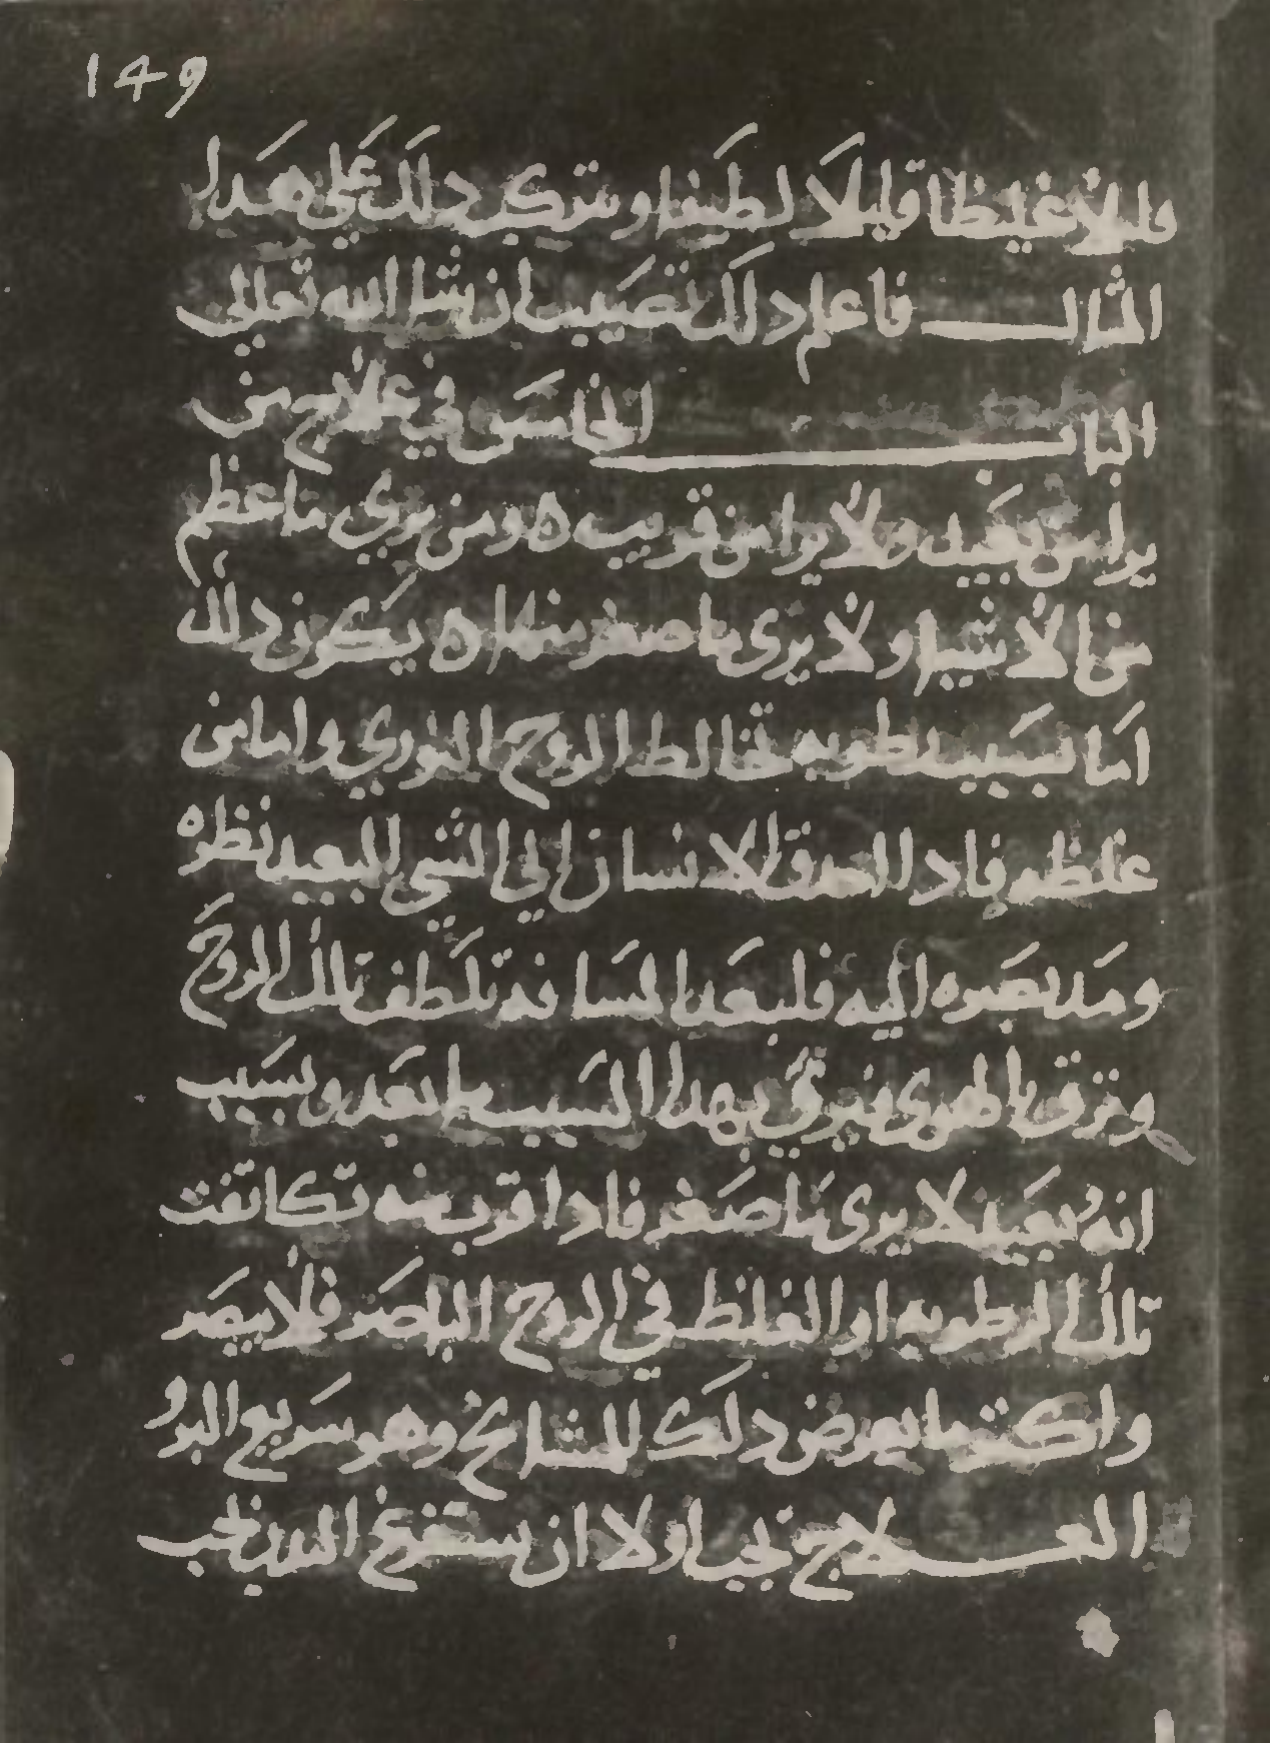 149
قليلا غليظا قليلا لطيفا وتركب دلك على هدا
المثال فاعلم دلك تصيب ان شا الله تعالى
الباب الخامس في علاج من
يرا من بعيد ولا يرا من قريب ه ومن يري ما عظم
من الاشيا ولا يرى ما صغر منها ه يكون دلك
اما بسبب رطوبه تخالط الروح النوري واما من
غلظه فادا احدق الانسان الي الشي البعيد نظره
ومد بصره اليه فلبعد المسافه تلطف تلك الروح
وترق بالهوى فيري بهدا السبب ما بعد وبسبب
انه بعيد لا يرى ما صغر فادا قرب منه تكاثفت
تلك الرطوبه او الغلظ في الروح الباصر فلا يبصر
واكثر ما يعرض دلك للمشايخ وهو سريع البرو
العلاج يجب اولا ان ستفرغ البدن بحب